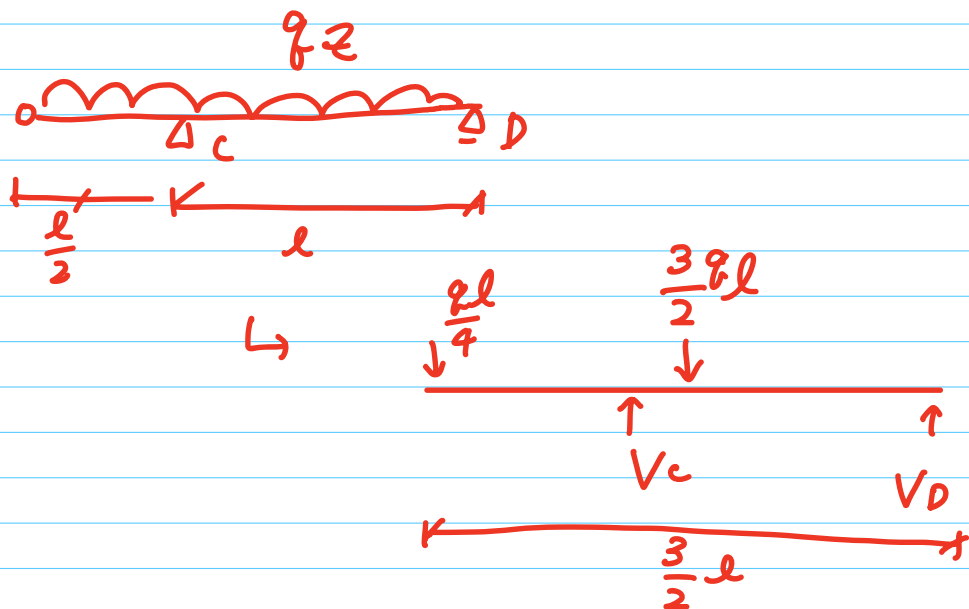 q2
C D
l/2 l
ql/4 3/2 ql
Vc VD
3/2 l